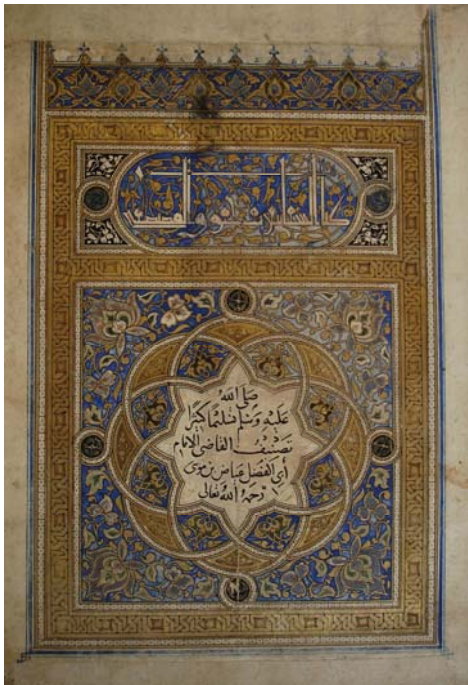 صَلَّى اللهُ
عَلَيْهِ وَسَلَّمَ تَسْلِيمًا كَثِيرًا
تَصْنِيفُ القَاضِى الإِمَام
أَبِى الفَضْلِ عِيَاضِ بنِ مُوسَى
رَحِمَهُ اللهُ تَعَالَى